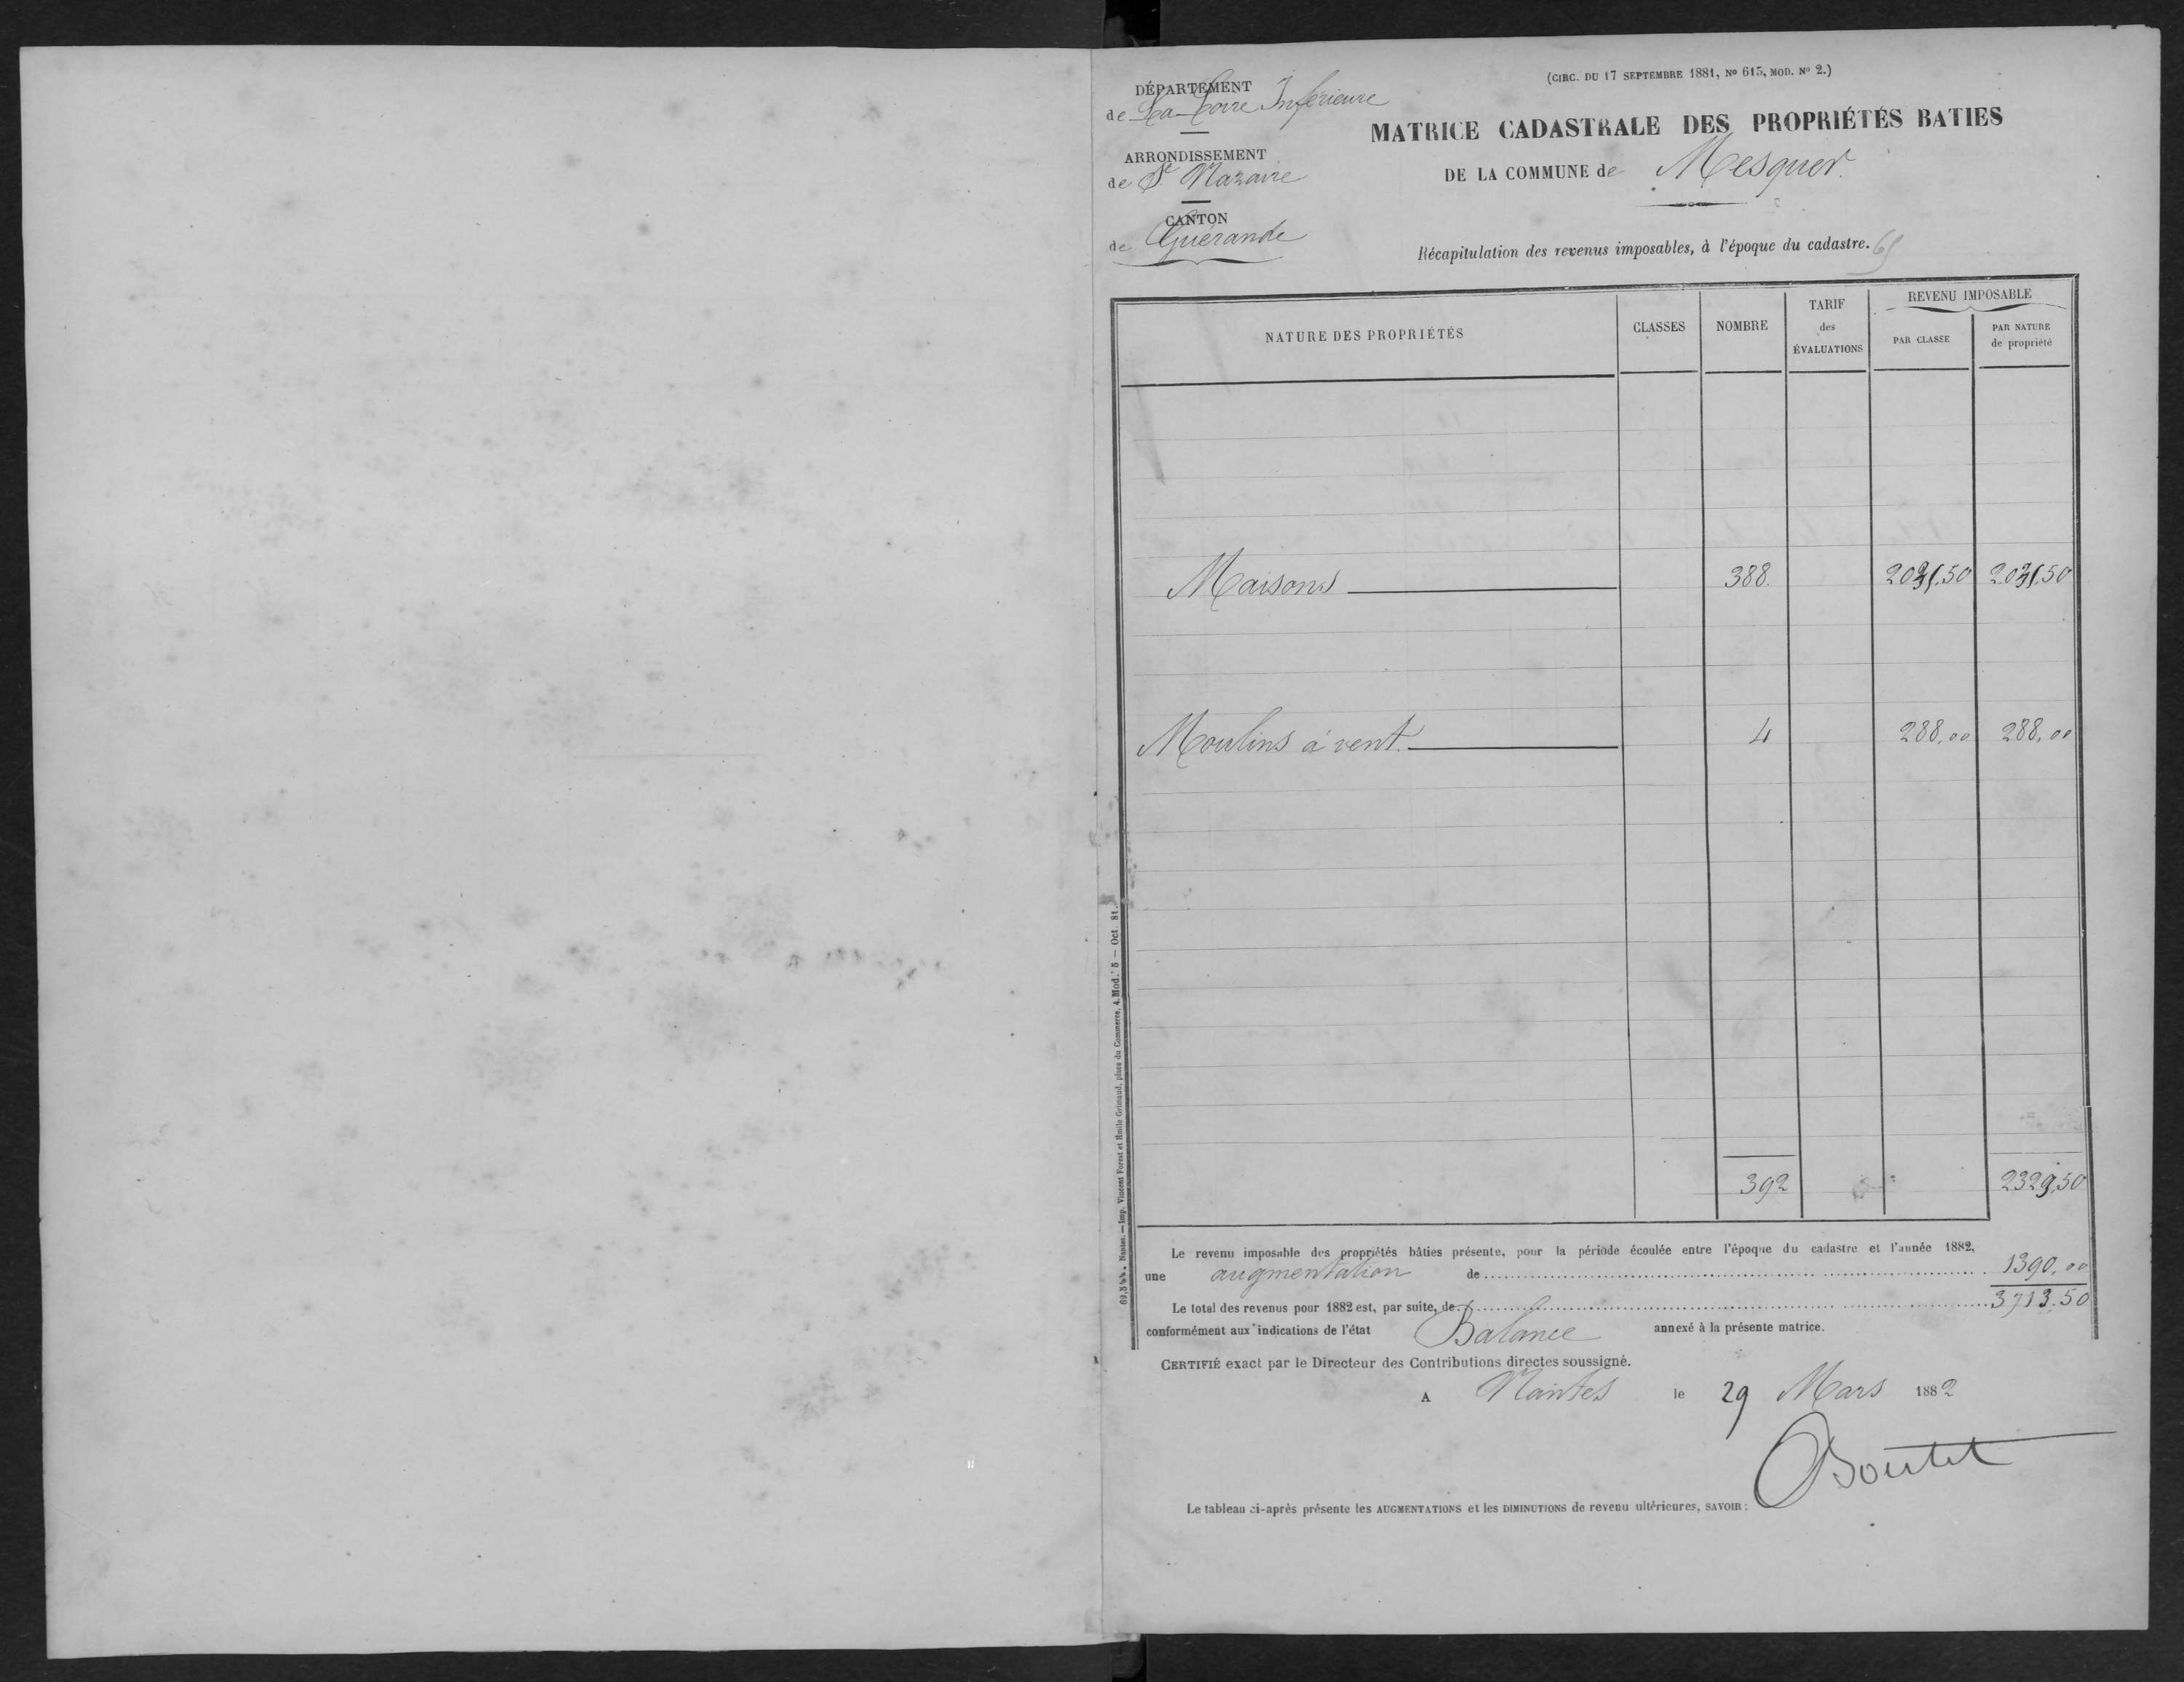 (CIRC. DU 17 SEPTEMBRE 1881, No 615, MOD. No 2.)
DÉPARTEMENT
de La Loire Inférieure
ARRONDISSEMENT
de St Nazaire
CANTON
de Guérande
MATRICE CADASTRALE DES PROPRIÉTÉS BATIES
DE LA COMMUNE de Mesquer.
Récapitulation des revenus imposables, à l'époque du cadastre.
NATURE DES PROPRIÉTÉS CLASSES NOMBRE TARIF des ÉVALUATIONS REVENU IMPOSABLE
PAR CLASSE PAR NATURE de propriété
Maisons 388.
Moulins à vent 4 288,00 288,00
392
Le revenu imposable des propriétés bâties présente, pour la période écoulée entre l'époque du cadastre et l'année 1882,
une augmentation de 1390,00
Le total des revenus pour 1882 est, par suite, de 3713.50
conformément aux indications de l'état Balance annexé à la présente matrice.
CERTIFIÉ exact par le Directeur des Contributions directes soussigné.
A Nantes le 29 Mars 1882
Boutet
Le tableau ci-après présente les AUGMENTATIONS et les DIMINUTIONS de revenu ultérieures, SAVOIR :
Nantes. — Imp. Vincent Forest et Emile Grimaud, place du Commerce, 4. Mod. 5 — Oct. 81.